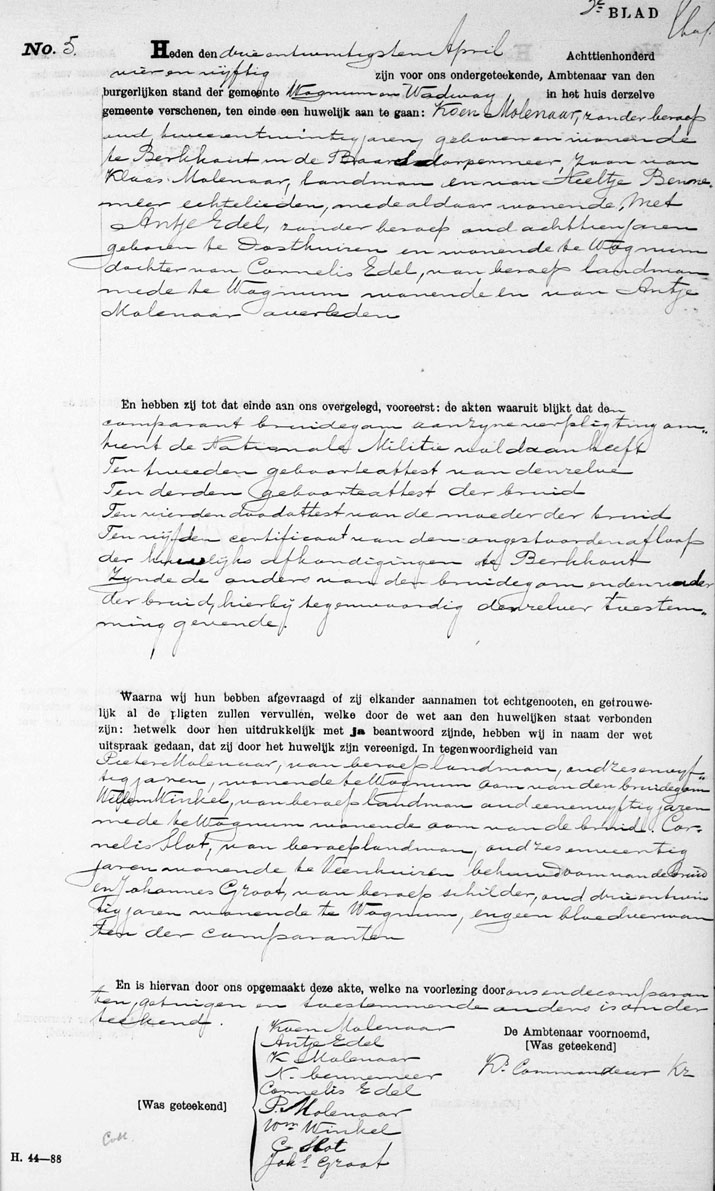 3e BLAD
No. 5.
Heden den drieentwintigsten April Achttienhonderd
vier en vijftig zijn voor ons ondergeteekende, Ambtenaar van den
burgerlijken stand der gemeente Wognum en Wadway, in het huis derzelve
gemeente verschenen, ten einde een huwelijk aan te gaan: Koen Molenaar, zonder beroep
oud tweeentwintig jaren, geboren en wonende
te Berkhout in de Baarsdorpermeer, zoon van
Klaas Molenaar, landman en van Neeltje Benne-
meer echtelieden, mede aldaar wonende, Met
Antje Edel, zonder beroep oud achttien jaren
geboren te Oosthuizen en wonende te Wognum
dochter van Cornelis Edel, van beroep landman
mede te Wognum wonende en van Antje
Molenaar overleden
En hebben zij tot dat einde aan ons overgelegd, vooreerst: de akten waaruit blijkt dat den
comparant bruidegom aan zyne verpligting om-
trent de Nationale Militie voldaan heeft
Ten tweeden geboorteattest van denzelve
Ten derden geboorteattest der bruid
Ten vierden doodattest van de moeder der bruid
Ten vijfden certificaat van den ongestoorden afloop
der huwelijks afkondigingen te Berkhout
Zynde de ouders van den bruidegom en den vader
der bruid, hierbij tegenwoordig derzelver toestem-
ming gevende
Waarna wij hun hebben afgevraagd of zij elkander aannamen tot echtgenooten, en getrouwe-
lijk al de pligten zullen vervullen, welke door de wet aan den huwelijken staat verbonden
zijn: hetwelk door hen uitdrukkelijk met Ja beantwoord zijnde, hebben wij in naam der wet
uitspraak gedaan, dat zij door het huwelijk zijn vereenigd. In tegenwoordigheid van
Pieter Molenaar, van beroep landman, oud zesenvyf-
tig jaren, wonende te Wognum oom van den bruidegom
Willem Winkel, van beroep landman oud eenenvyftig jaren
mede te Wognum wonende oom van de bruid. Cor-
nelis Slot, van beroep landman, oud zesenveertig
jaren wonende te Veenhuizen behuwdoom van de bruid
en Johannes Groot, van beroep schilder, oud drieentwin
tig jaren wonende te Wognum, en geen bloedverwan
ten der comparanten
En is hiervan door ons opgemaakt deze akte, welke na voorlezing door ons en de comparan
ten, getuigen en toestemmende ouders is onder
teekend.
Koen Molenaar
Antje Edel
K Molenaar
N. bennemeer
Cornelis Edel
P. Molenaar
Wm Winkel
C Slot
Johs Groot
[Was geteekend]
De Ambtenaar voornoemd,
[Was geteekend]
Kr. Commandeur Kz
Coll.
H. 44—88